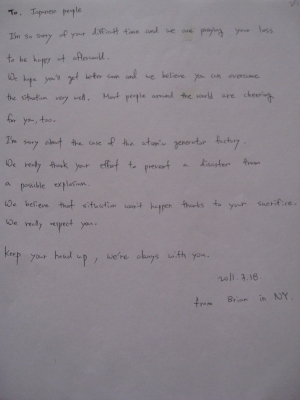 To. Japanese people
I'm so sorry of your difficult time and we are praying your loss
to be happy at afterworld.
We hope you'll get better soon and we believe you can overcome
the situation very well. Most people around the world are cheering
for you, too.
I'm sorry about the case of the atomic generator factory.
We really thank your effort to prevent a disaster from
a possible explosion.
We believe that situation won't happen thanks to your sacrifice.
We really respect you.
Keep your head up, we're always with you.
2011. 3. 18.
from Brian in NY.